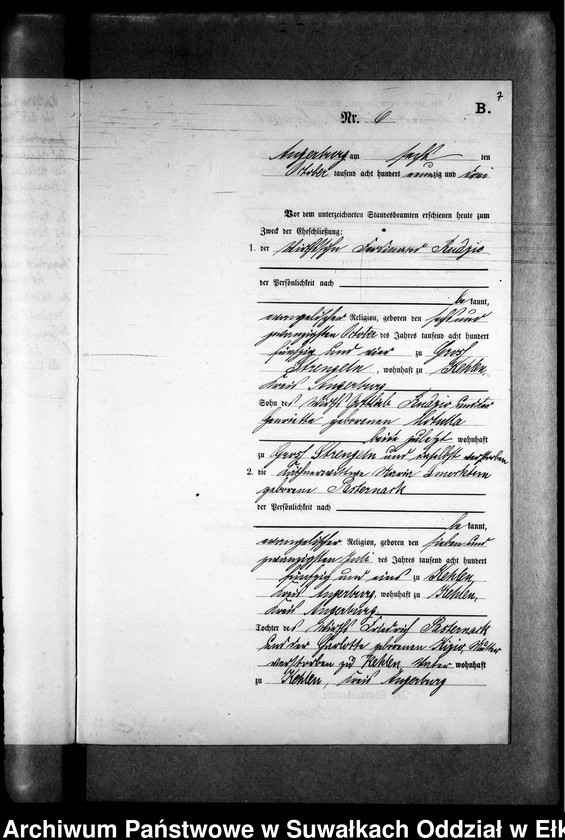 7
B.
Nr. 6
Angerburg am sechs ten
October tausend acht hundert neunzig und drei
Vor dem unterzeichneten Standesbeamten erschienen heute zum
Zweck der Eheschließung:
1. der Wirthssohn Ferdinand Rudzio
der Persönlichkeit nach
be kannt,
evangelischer Religion, geboren den sechsund
zwanzigsten October des Jahres tausend acht hundert
fünfzig und vier zu Groß
Strengeln, wohnhaft zu Kehlen,
Kreis Angerburg
Sohn des Wirths Gottlieb Rudzio und der
Henriette geborenen
beide zuletzt wohnhaft
zu Groß Strengeln und daselbst verstorben
2. die Maria
geborene Pasternack
der Persönlichkeit nach
be kannt,
evangelischer Religion, geboren den sieben und
zwanzigsten Juli des Jahres tausend acht hundert
fünfzig und eins zu Kehlen,
Kreis Angerburg, wohnhaft zu Kehlen,
Kreis Angerburg
Tochter des Wirths Friedrich Pasternack
und der Charlotte geborenen
verstorben zu Kehlen, Vater wohnhaft
zu Kehlen, Kreis Angerburg
Archiwum Państwowe w Suwałkach Oddział w Ełk